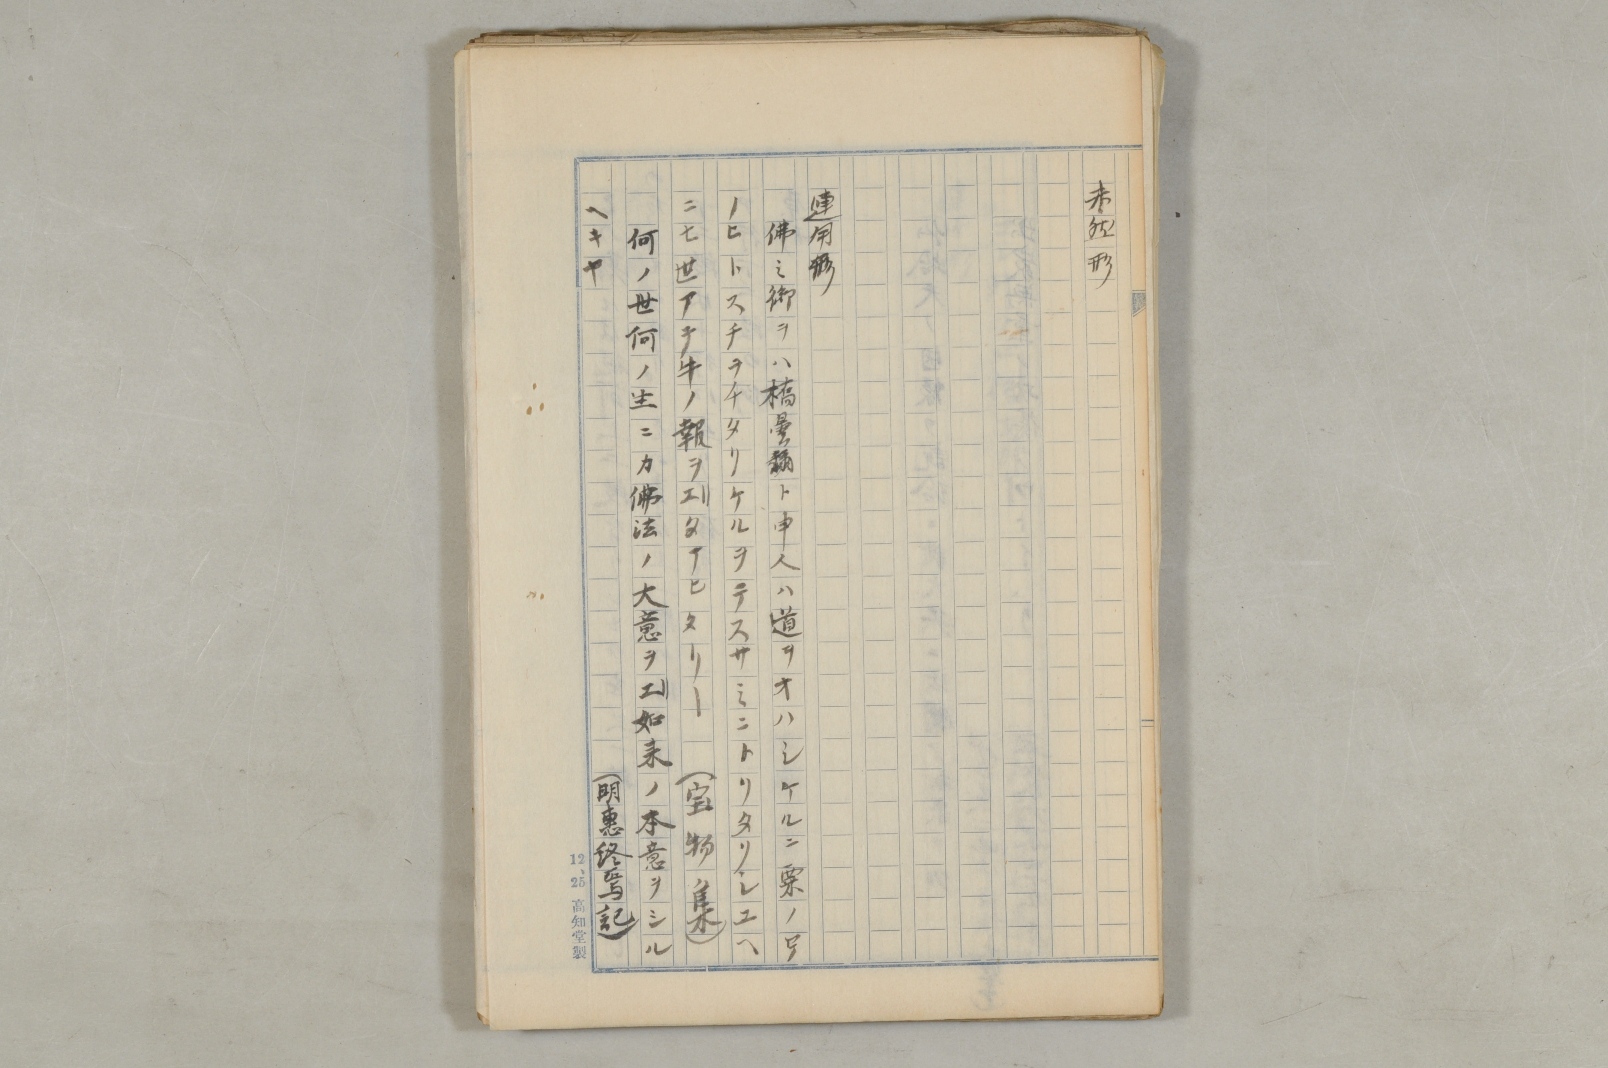 未然形
連用形
佛ミ御ヲハ槗曇弥ト申人ハ道ヲオハシケルニ粟ノ
ノヒトスチヲチタリケルヲテスサミニトリタリシユヘ
ニ七世アヒタ牛ノ報ヲエタマヒタリー (宝物集)
何ノ世何ノ生ニカ佛法ノ大意ヲエ如来ノ本意ヲシル
ヘキヤ (明惠終焉記)
12、25 高知堂製